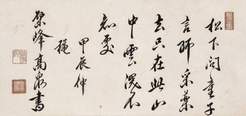 松下問童子
言師采藥
去只在此山
中雲深不
知處
甲辰仲
穐
峰高書